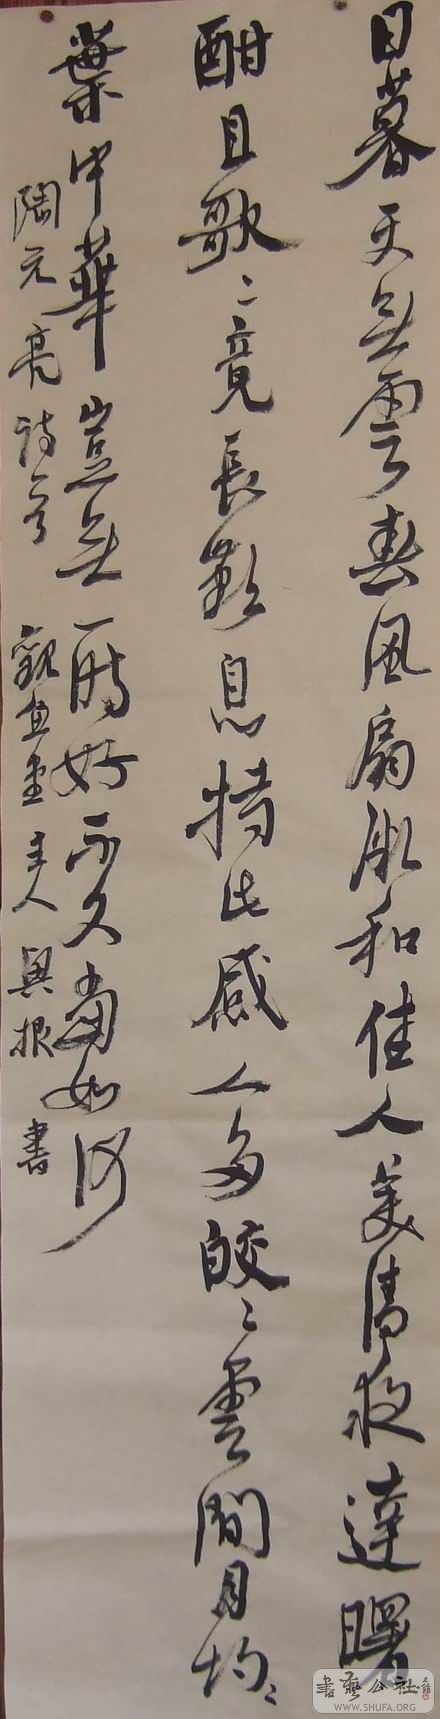 日暮天無雲春風扇微和佳人美清夜達曙
酣且歌〻竟長歎息持此感人多皎〻雲間月灼〻
葉中華豈無一時好不久當如何
陶元亮詩 觀魚堂主人興根書
書藝公社
WWW.SHUFA.ORG